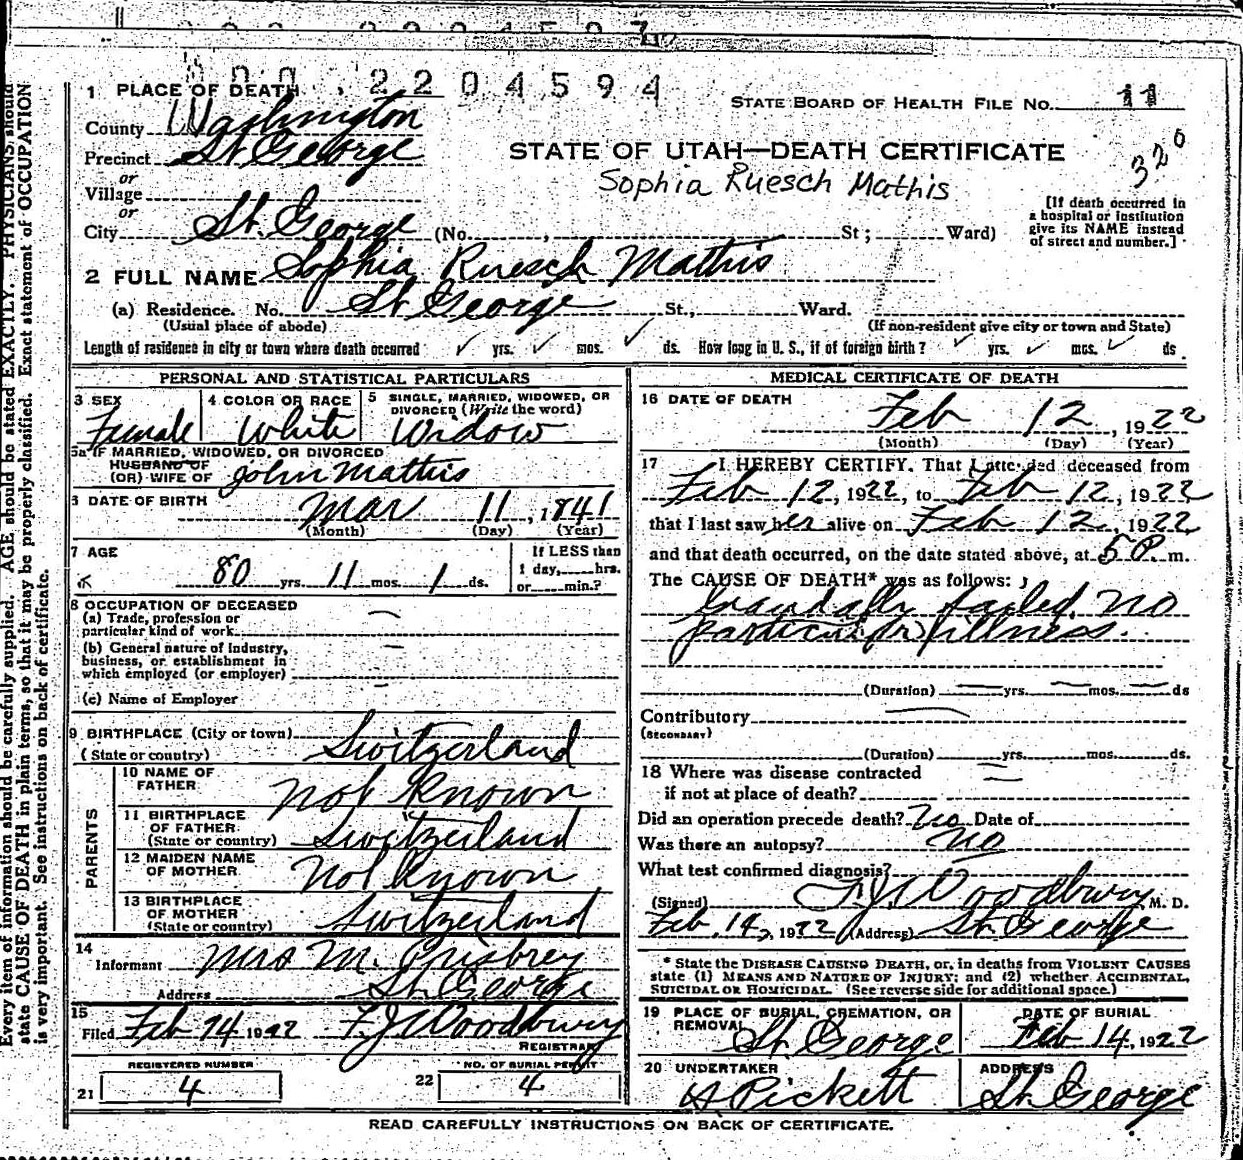 000 2204594
1 PLACE OF DEATH
STATE BOARD OF HEALTH FILE NO. 11
County Washington
Precinct St. George
STATE OF UTAH—DEATH CERTIFICATE
320
or
Village
Sophia Ruesch Mathis
or
City St. George (No. , St; Ward)
[If death occurred in
a hospital or institution
give its NAME instead
of street and number.]
2 FULL NAME Sophia Ruesch Mathis
(a) Residence. No. St. George St., Ward.
(Usual place of abode) (If non-resident give city or town and State)
Length of residence in city or town where death occurred ✓ yrs. ✓ mos. ✓ ds. How long in U. S., if of foreign birth? ✓ yrs. ✓ mos. ✓ ds.
PERSONAL AND STATISTICAL PARTICULARS
3 SEX
Female
4 COLOR OR RACE
White
5 SINGLE, MARRIED, WIDOWED, OR
DIVORCED (Write the word)
Widow
5a IF MARRIED, WIDOWED, OR DIVORCED
HUSBAND OF
(OR) WIFE OF John Mathis
6 DATE OF BIRTH Mar 11, 1841
(Month) (Day) (Year)
7 AGE
80 yrs. 11 mos. 1 ds.
If LESS than
1 day, hrs.
or min.?
8 OCCUPATION OF DECEASED
(a) Trade, profession or
particular kind of work
(b) General nature of Industry,
business, or establishment in
which employed (or employer)
(c) Name of Employer
9 BIRTHPLACE (City or town) Switzerland
(State or country)
PARENTS
10 NAME OF
FATHER Not Known
11 BIRTHPLACE
OF FATHER
(State or country) Switzerland
12 MAIDEN NAME
OF MOTHER Not Known
13 BIRTHPLACE
OF MOTHER
(State or country) Switzerland
14
Informant Mrs M. Prisbrey
Address St. George
15
Filed Feb 14 1922 F. J. Woodbury
REGISTRAR
REGISTERED NUMBER
21 4
NO. OF BURIAL PERMIT
22 4
MEDICAL CERTIFICATE OF DEATH
16 DATE OF DEATH
Feb 12, 1922
(Month) (Day) (Year)
17 I HEREBY CERTIFY, That I attended deceased from
Feb 12, 1922, to Feb 12, 1922
that I last saw her alive on Feb 12, 1922
and that death occurred, on the date stated above, at 5 P. m.
The CAUSE OF DEATH* was as follows:
failed no
particular illness.
(Duration) yrs. mos. ds
Contributory
(SECONDARY)
(Duration) yrs. mos. ds.
18 Where was disease contracted
if not at place of death?
Did an operation precede death? No Date of
Was there an autopsy? No
What test confirmed diagnosis?
(Signed) F. J. Woodbury M. D.
Feb. 14, 1922 (Address) St. George
* State the DISEASE CAUSING DEATH, or, in deaths from VIOLENT CAUSES
state (1) MEANS AND NATURE OF INJURY; and (2) whether ACCIDENTAL,
SUICIDAL OR HOMICIDAL. (See reverse side for additional space.)
19 PLACE OF BURIAL, CREMATION, OR
REMOVAL
St. George
DATE OF BURIAL
Feb 14, 1922
20 UNDERTAKER
A Pickett
ADDRESS
St. George
READ CAREFULLY INSTRUCTIONS ON BACK OF CERTIFICATE.
Every item of information should be carefully supplied. AGE should be stated EXACTLY. PHYSICIANS should
state CAUSE OF DEATH in plain terms, so that it may be properly classified. Exact statement of OCCUPATION
is very important. See instructions on back of certificate.